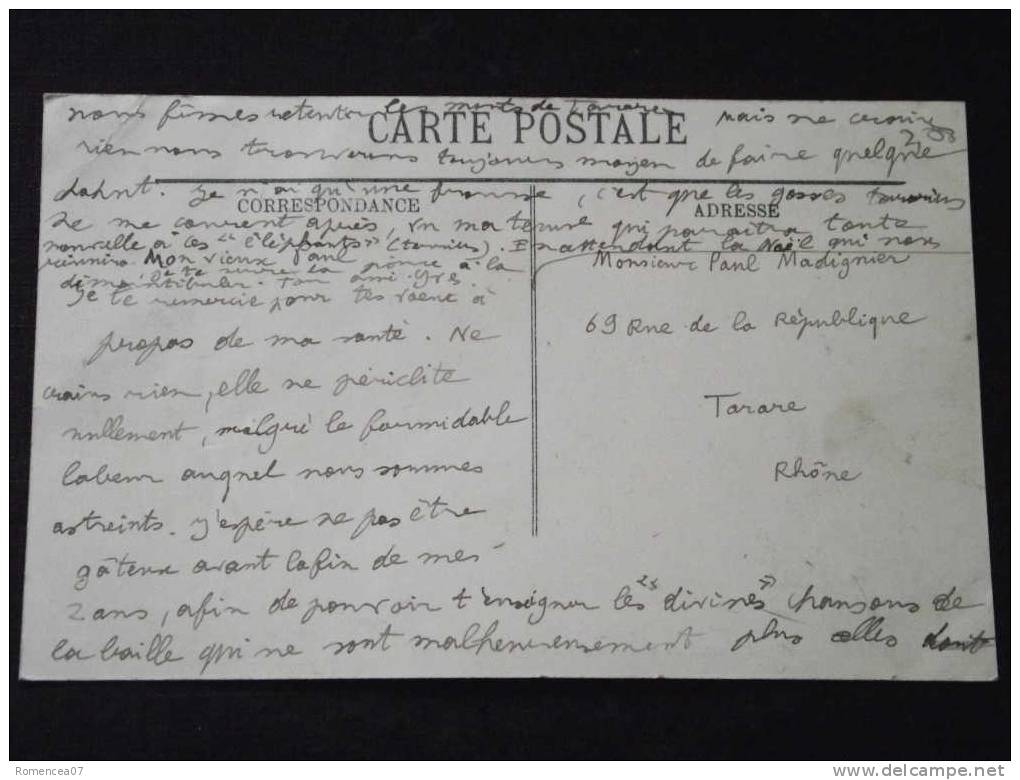 nous fîmes retentir les monts de Tarare. Mais ne crains
CARTE POSTALE
rien nous trouverons toujours moyen de faire quelque
chahut. Je n'ai qu'une frousse, c'est que les gosses
CORRESPONDANCE
ADRESSE
ne me courent après, vu ma tenue qui paraîtra toute
nouvelle à ces "éléphants" (terriens). En attendant la Noël qui nous
réunira
Mon vieux Paul
je te serre la pince à la
Ton ami Yves.
Je te remercie pour tes vœux à
propos de ma santé. Ne
crains rien, elle ne périclite
nullement, malgré le formidable
labeur auquel nous sommes
astreints. J'espère ne pas être
gâteux avant la fin de mes
2 ans, afin de pouvoir t'enseigner les "divines" chansons de
la baille qui ne sont malheureusement plus celles dont
Monsieur Paul Madignier
69 Rue de la République
Tarare
Rhône
Romencea07
www.delcampe.net